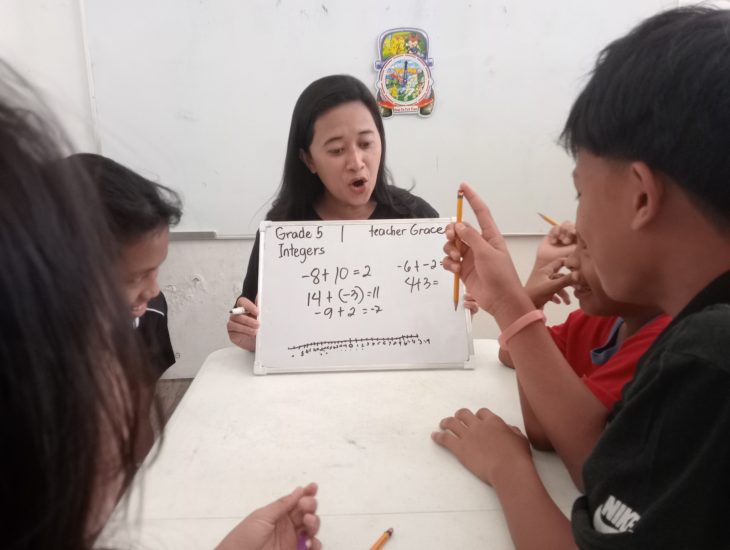 Grade 5 | teacher Grace
Integers
-8+10=2
14+(-3)=11
-9+2=-7
-6+-2=
4+3=
NIKE